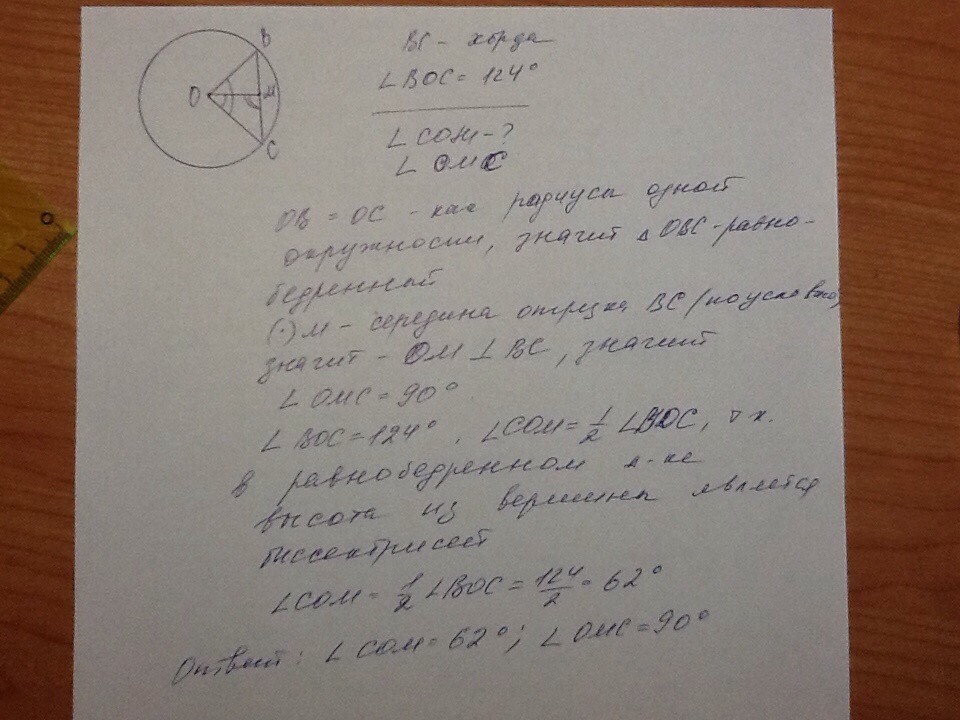 B
O
M
C
BC - хорда
∠BOC = 124°
∠COM - ?
∠OMC
OB = OC - как радиусы одной
окружности, значит △OBC - равно-
бедренный
(·) M - середина отрезка BC (по условию)
значит - OM ⊥ BC, значит
∠OMC = 90°
∠BOC = 124°, ∠COM = 1/2 ∠BOC, т. к.
в равнобедренном △-ке
высота из вершины является
биссектрисой
∠COM = 1/2 ∠BOC = 124/2 = 62°
Ответ: ∠COM = 62°; ∠OMC = 90°
0